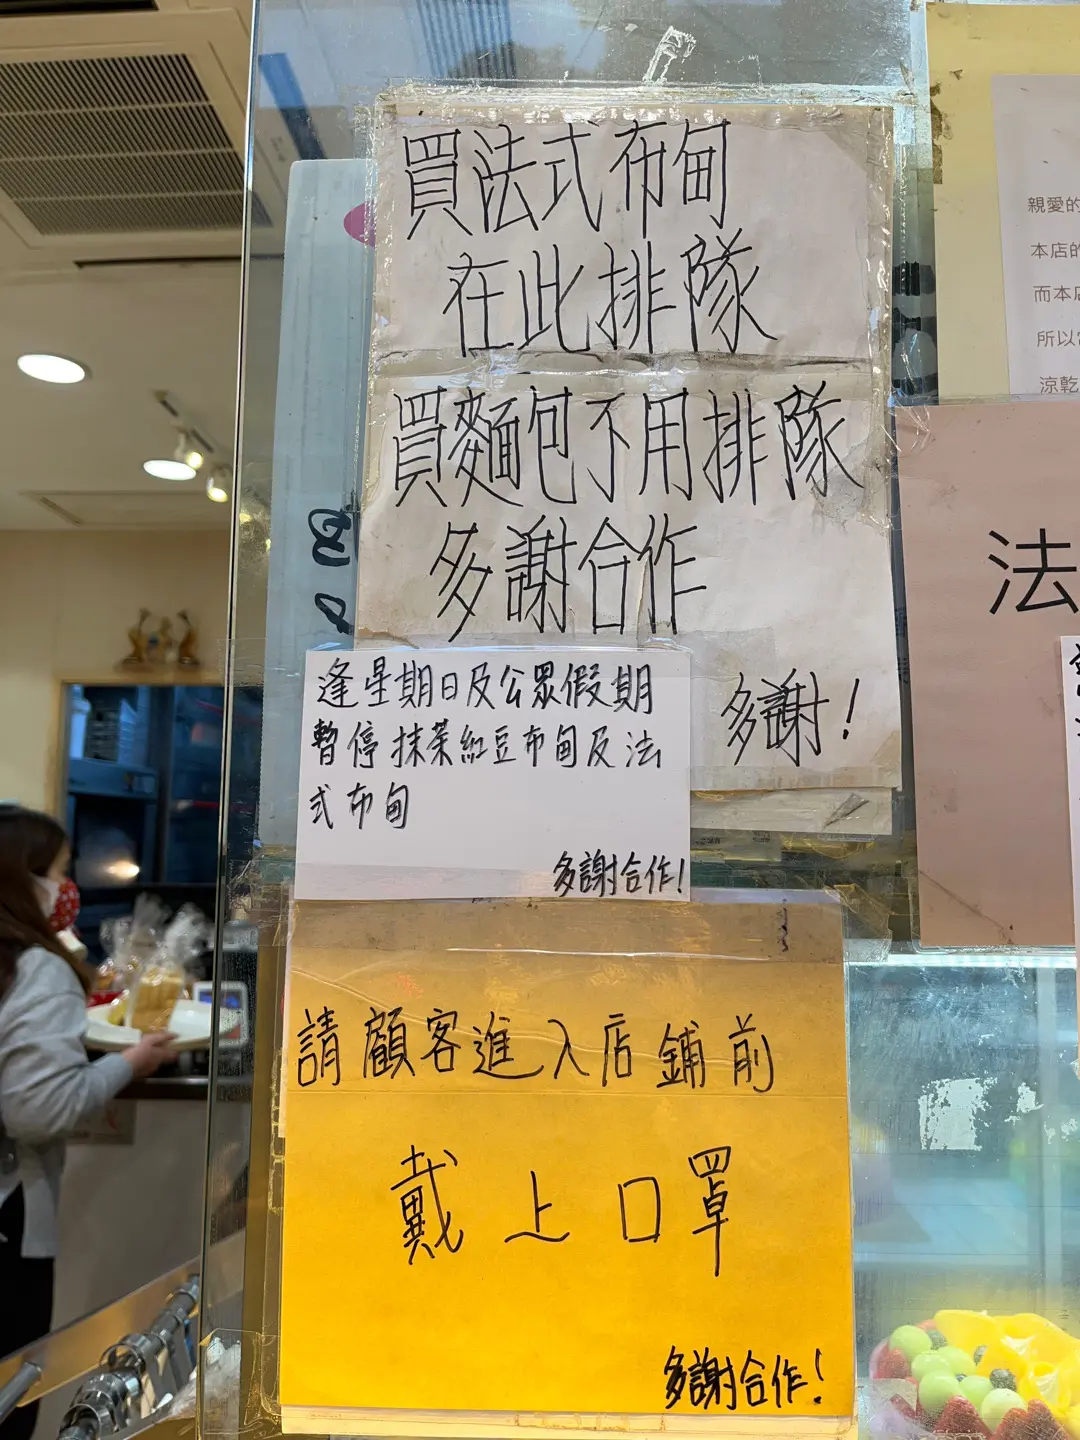 買法式布甸
在此排隊
買麵包不用排隊
多謝合作
多謝！
逢星期日及公眾假期
暫停抹茶紅豆布甸及法
式布甸
多謝合作！
請顧客進入店鋪前
戴上口罩
多謝合作！
親愛的
本店的
而本店
所以
涼乾
法